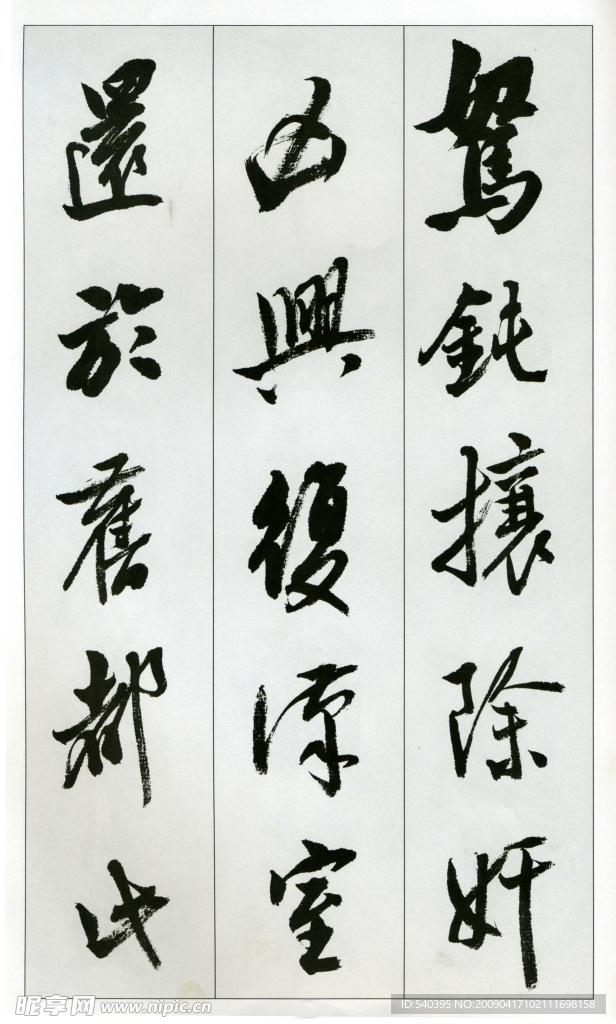 駑鈍攘除奸
凶興復漢室
還於舊都此
昵享网 www.nipic.cn
ID:540395 NO:20090417102111698158